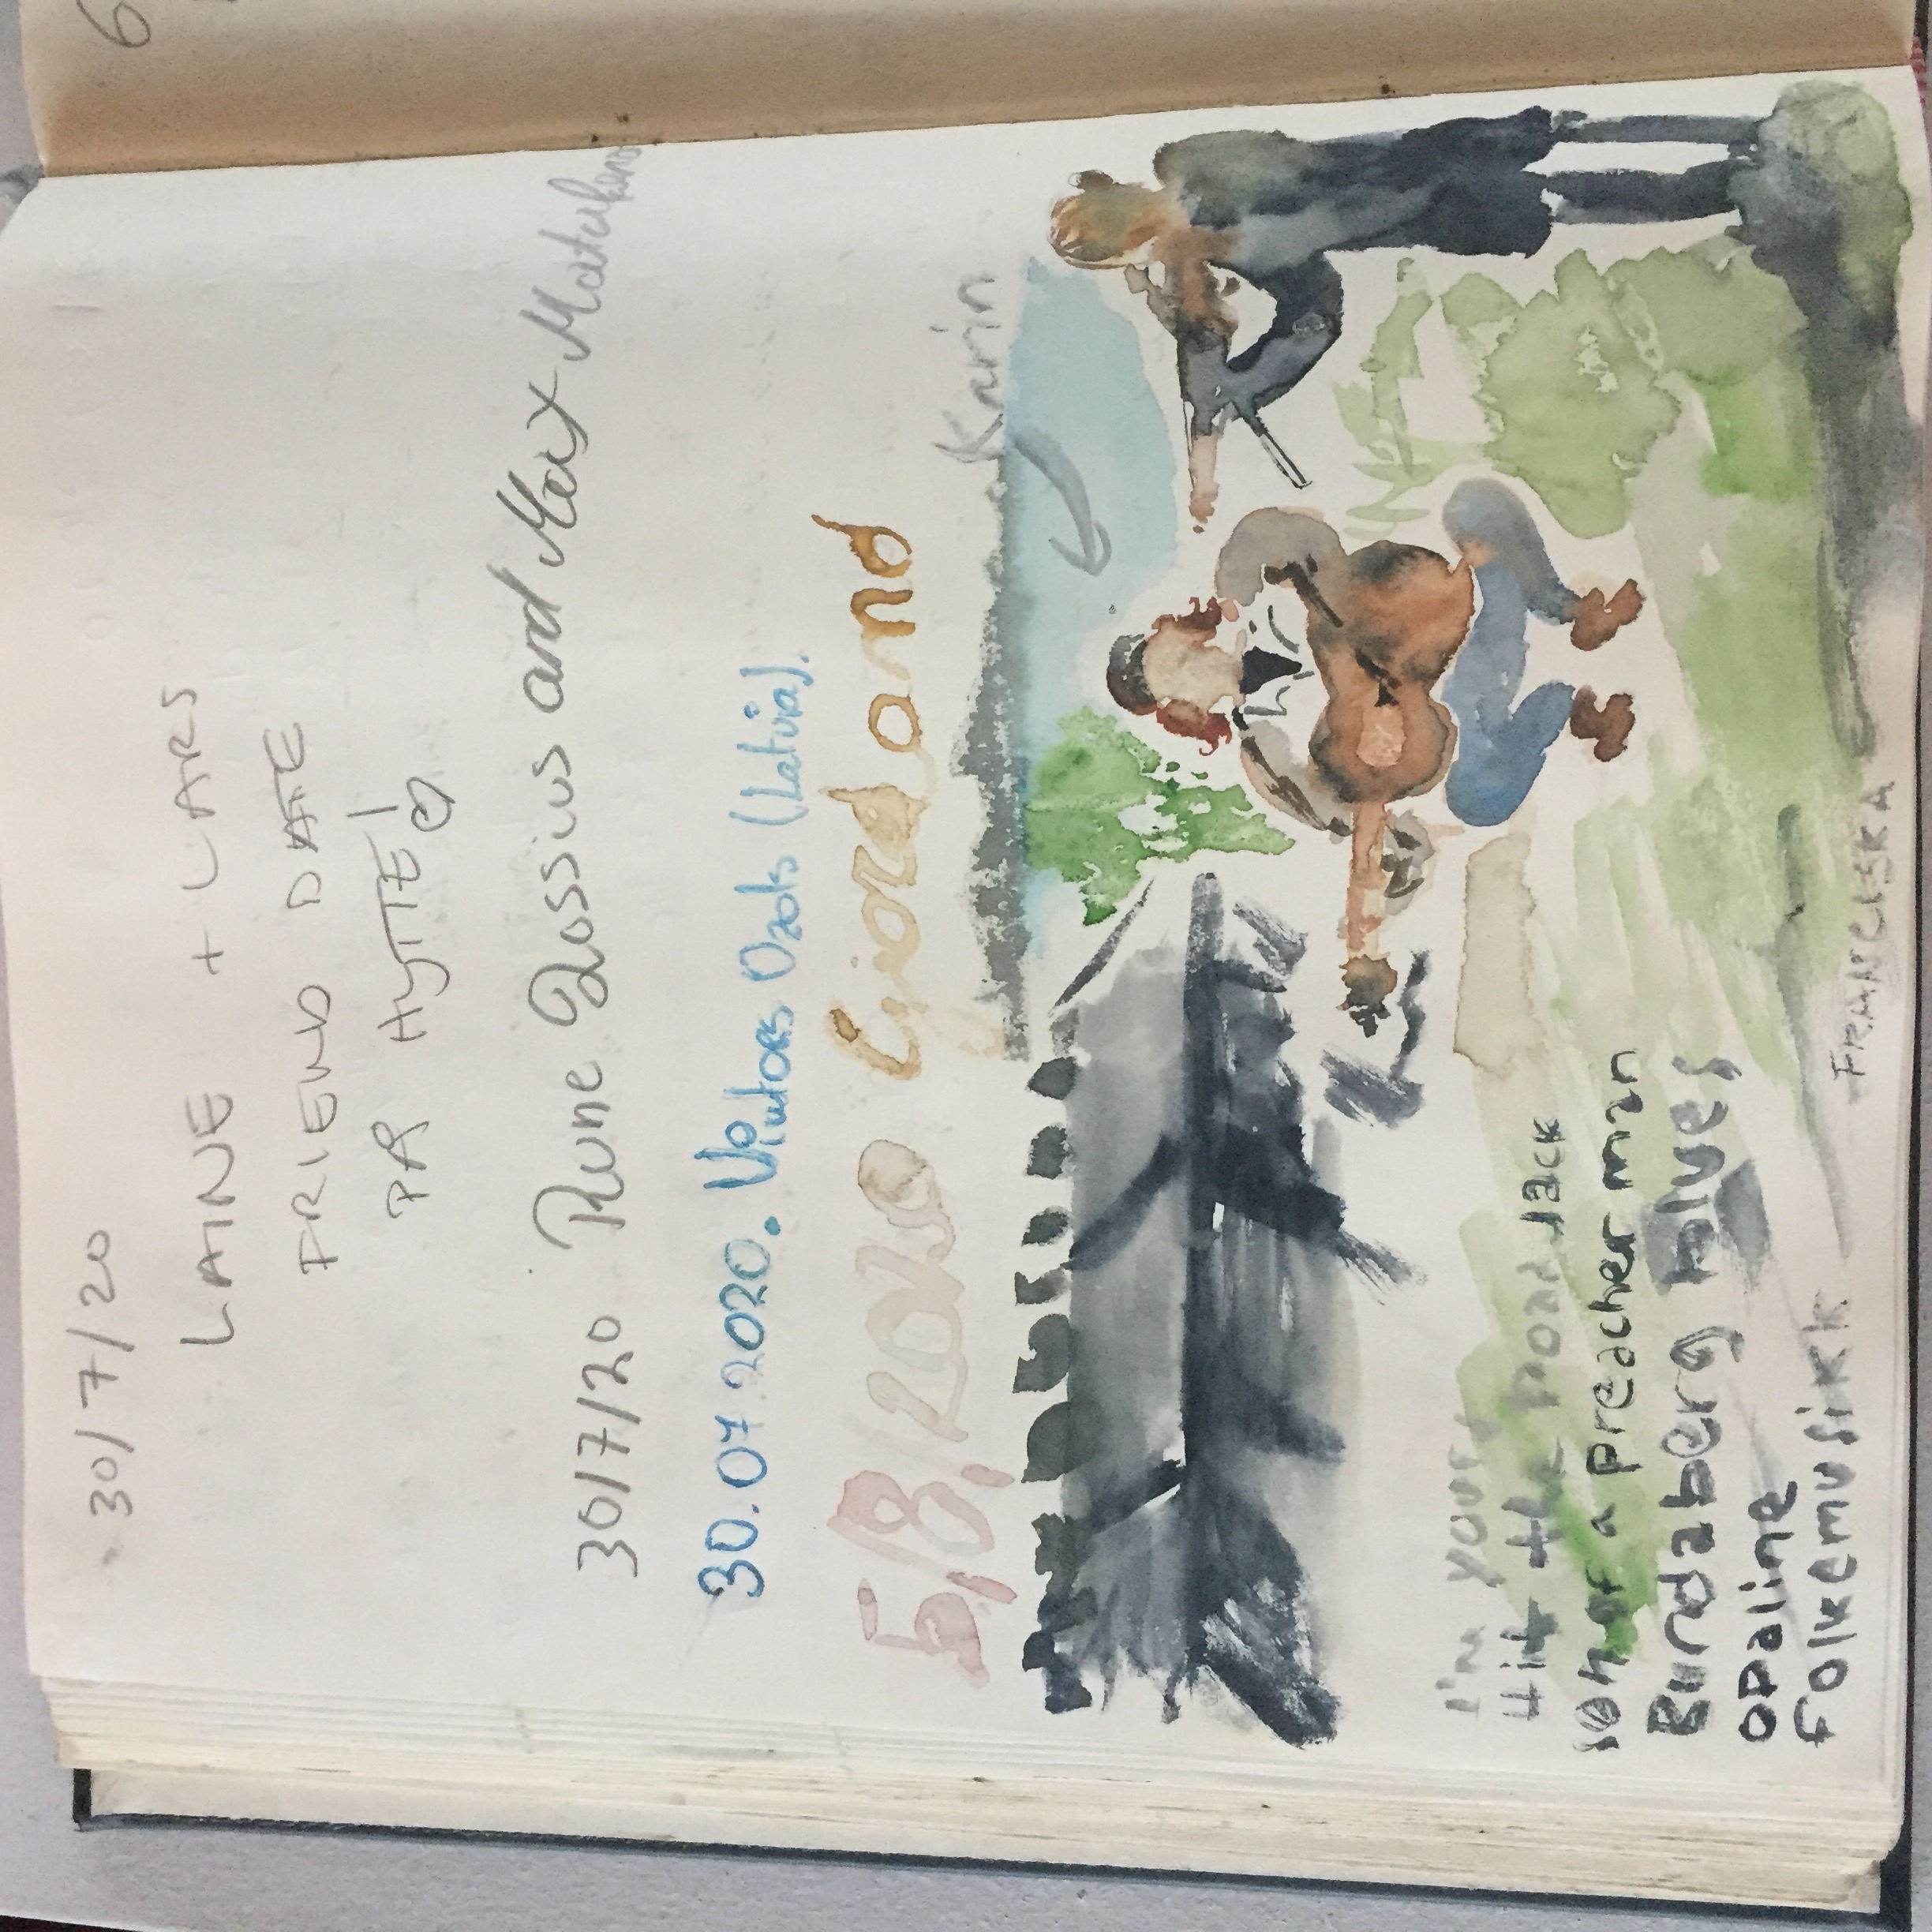 6
30/7/20
LAINE + LARS
FRIEND DATE
PÅ HYTTE!
30/7/20 Rune and Max
30.07.2020. Ozols (Latvia).
5/8. 2020
Karin
I'm yours
Hit the road Jack
son of a preacher man
Bundaberg
opaline
folkemusikk
FRANCISKA